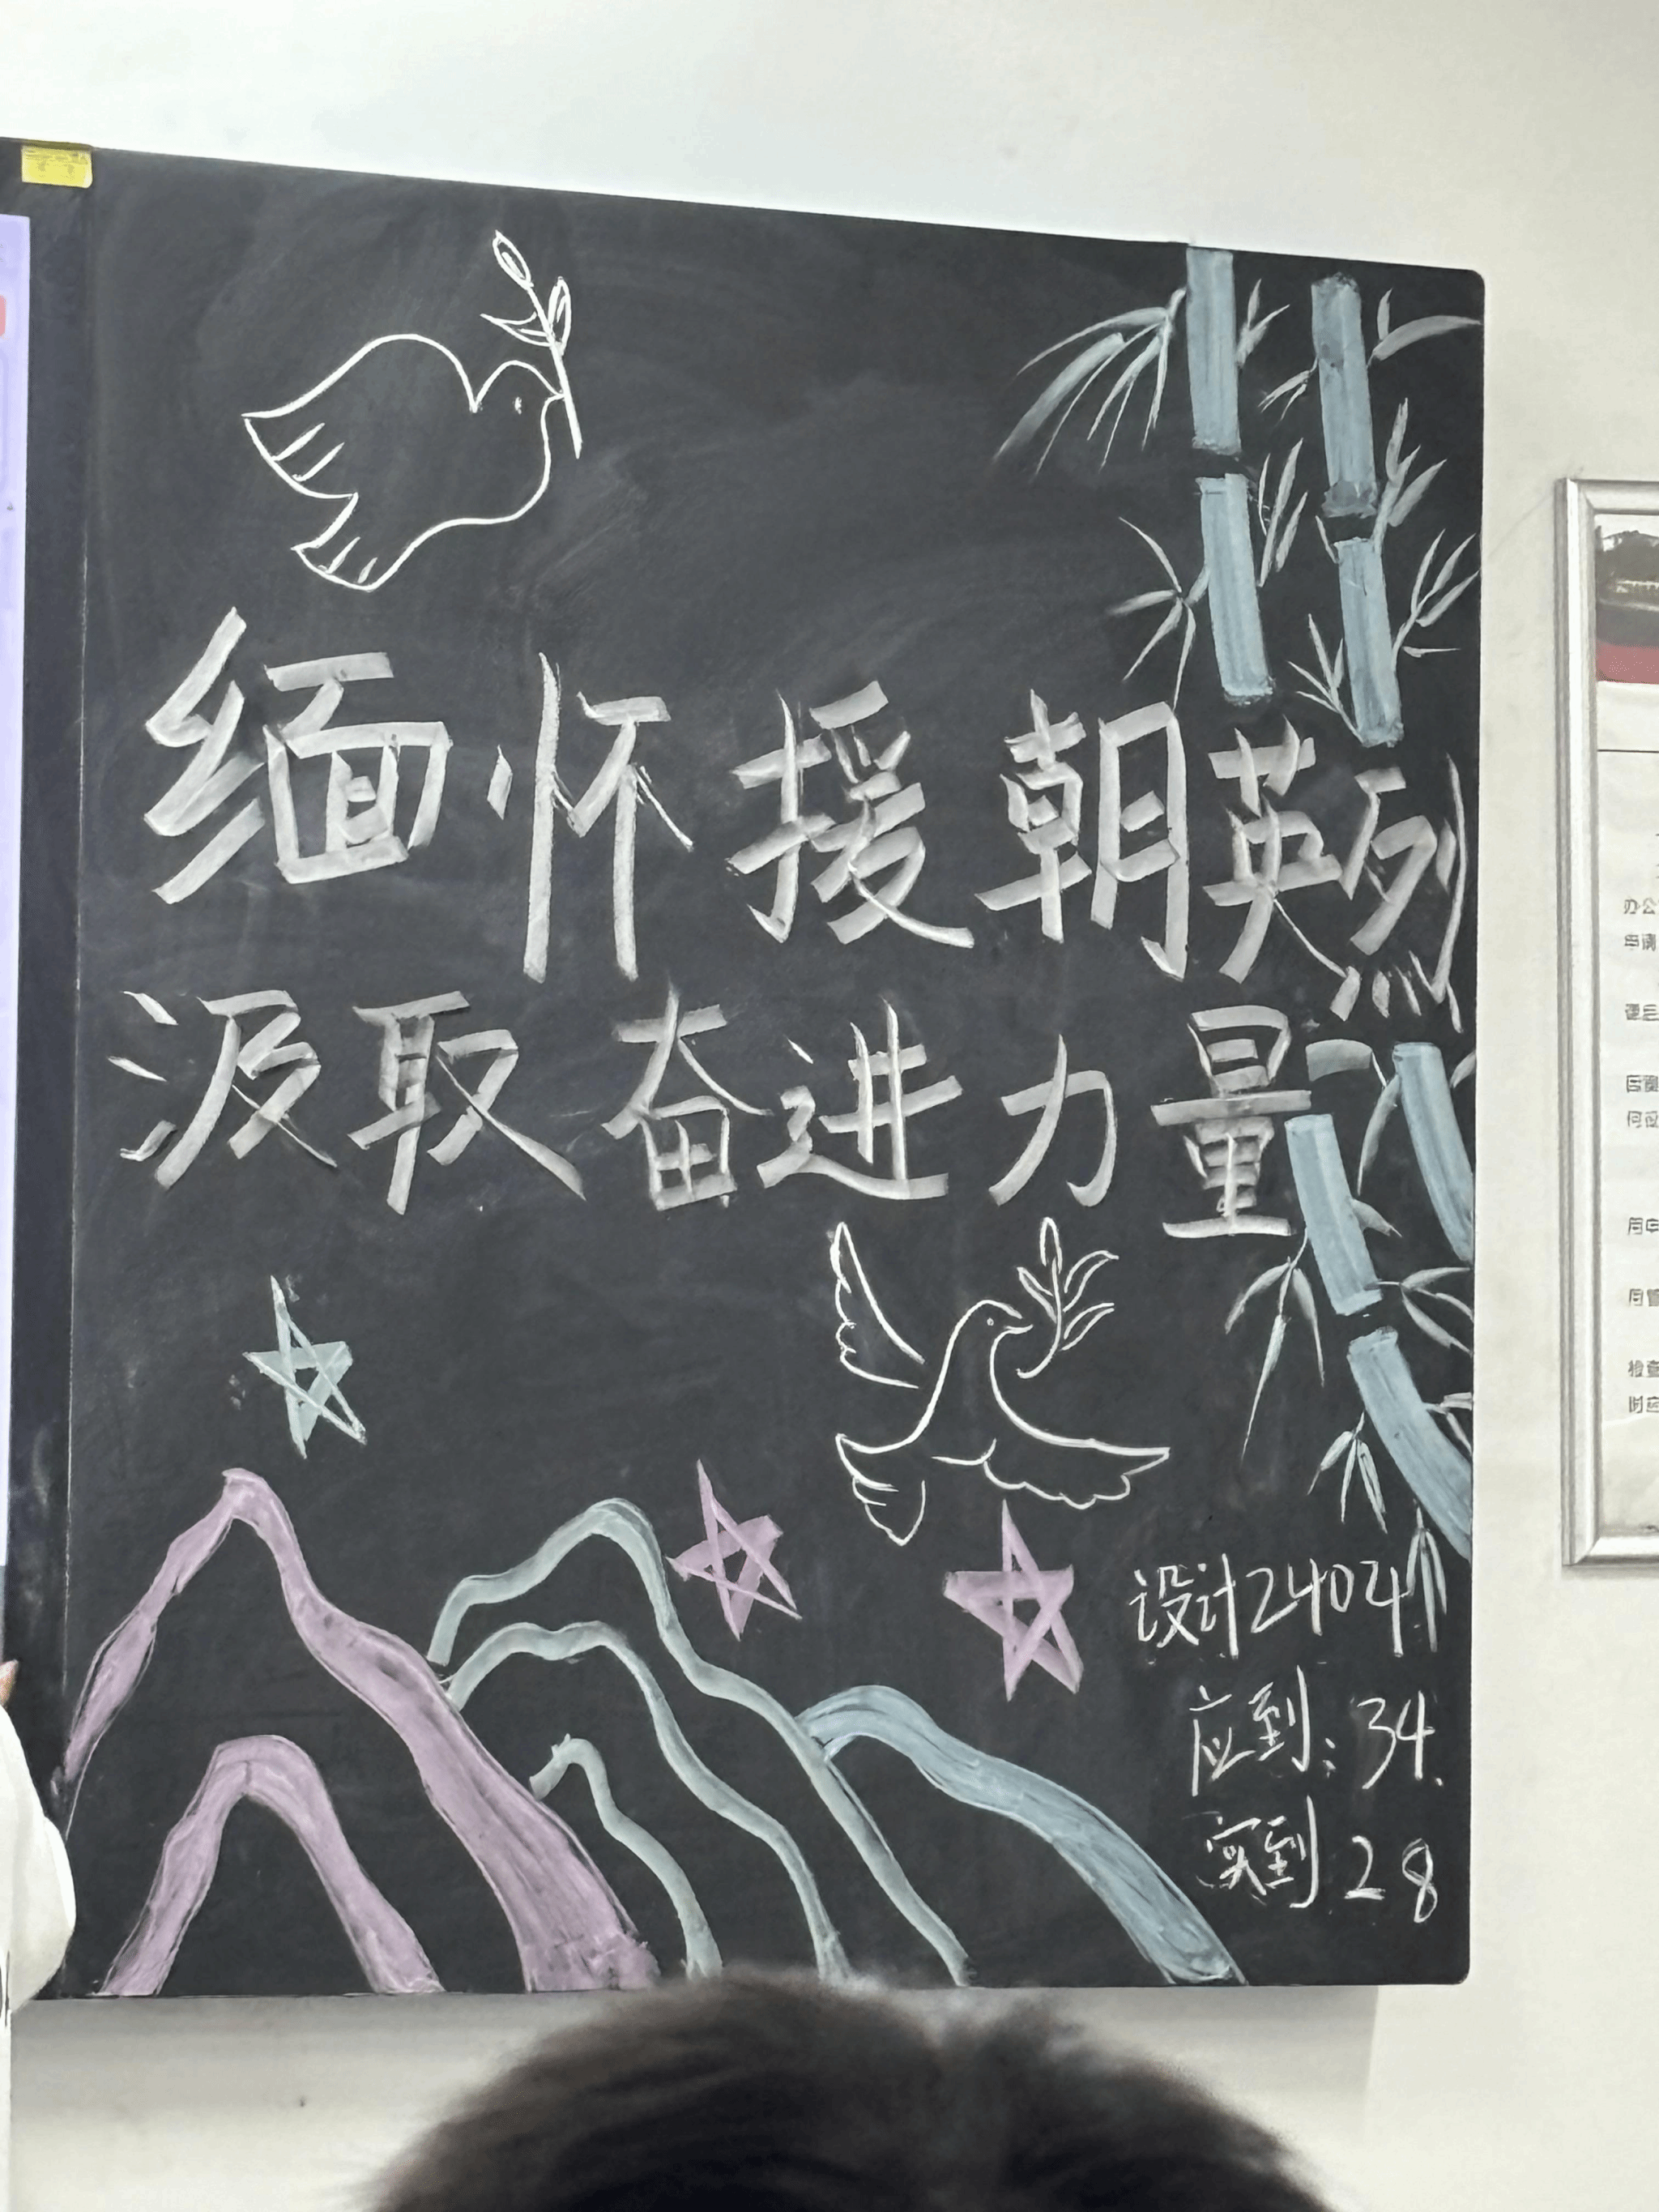 缅怀援朝英烈
汲取奋进力量
设计2404
应到：34.
实到 28
办公
申请